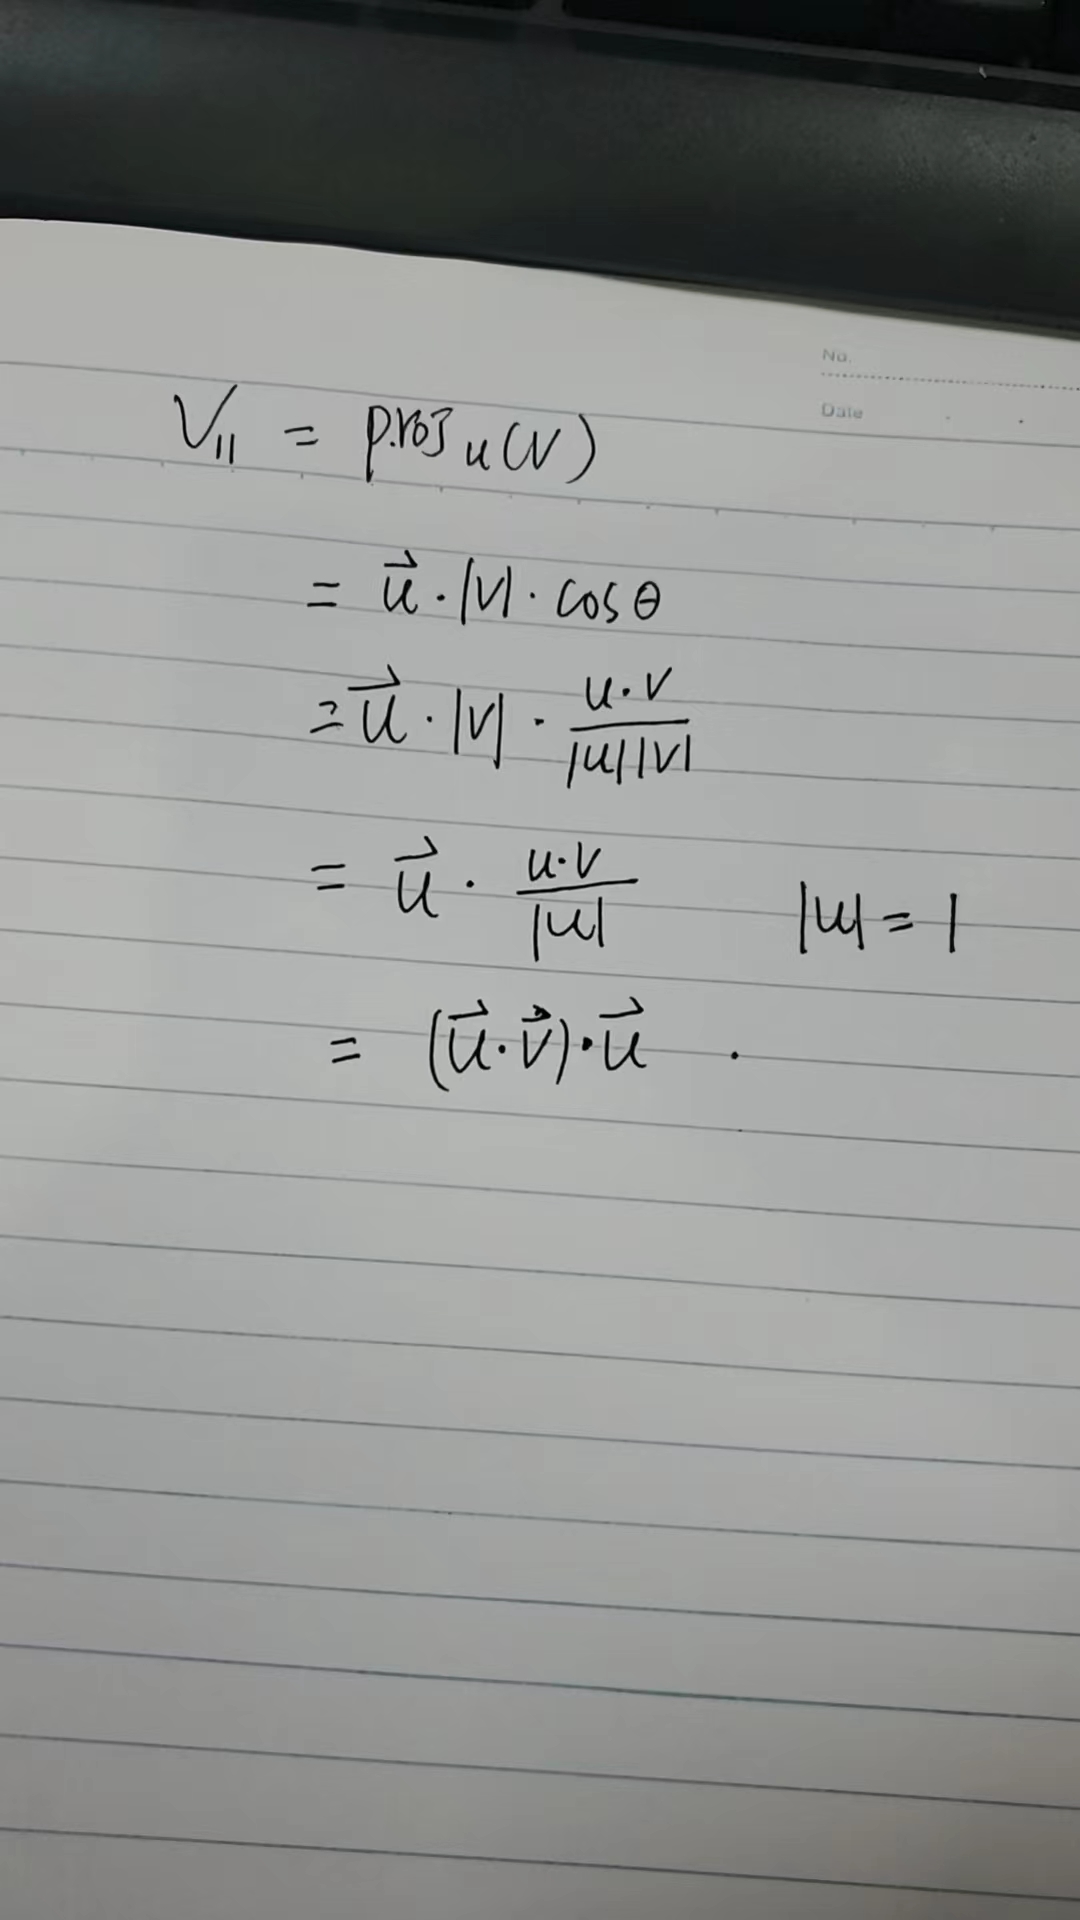 No.
Date
V∥ = proj u(V)
= u⃗ · |V| · cosθ
= u⃗ · |V| · u·V / |u||V|
= u⃗ · u·V / |u| |u| = 1
= (u⃗·v⃗)·u⃗